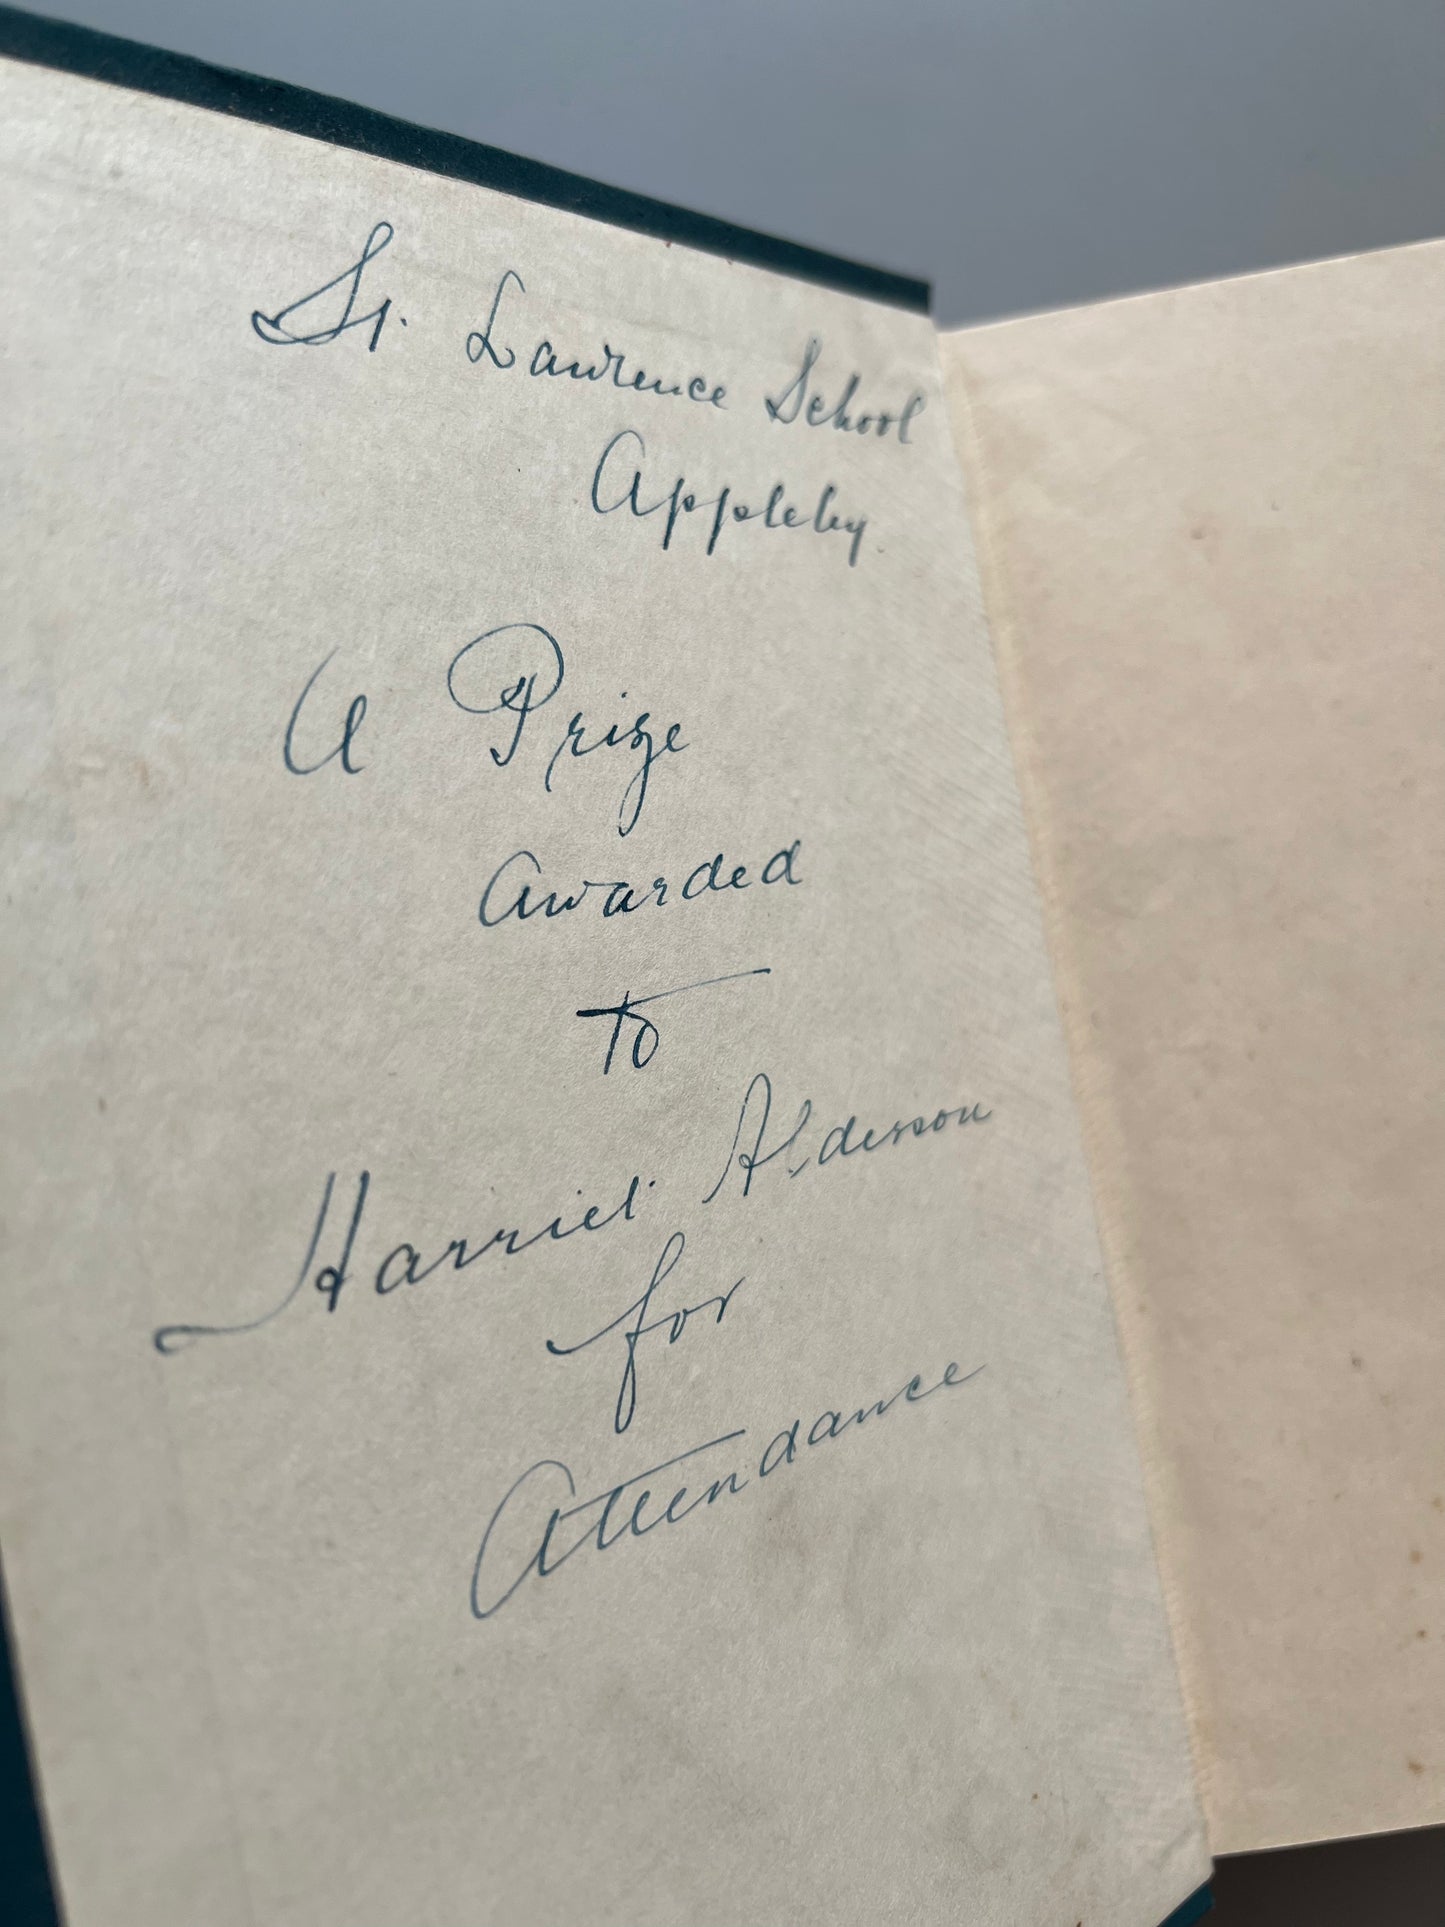 St. Lawrence School
Appleby.
A Prize
Awarded
to
Harriet Alderson
for
Attendance